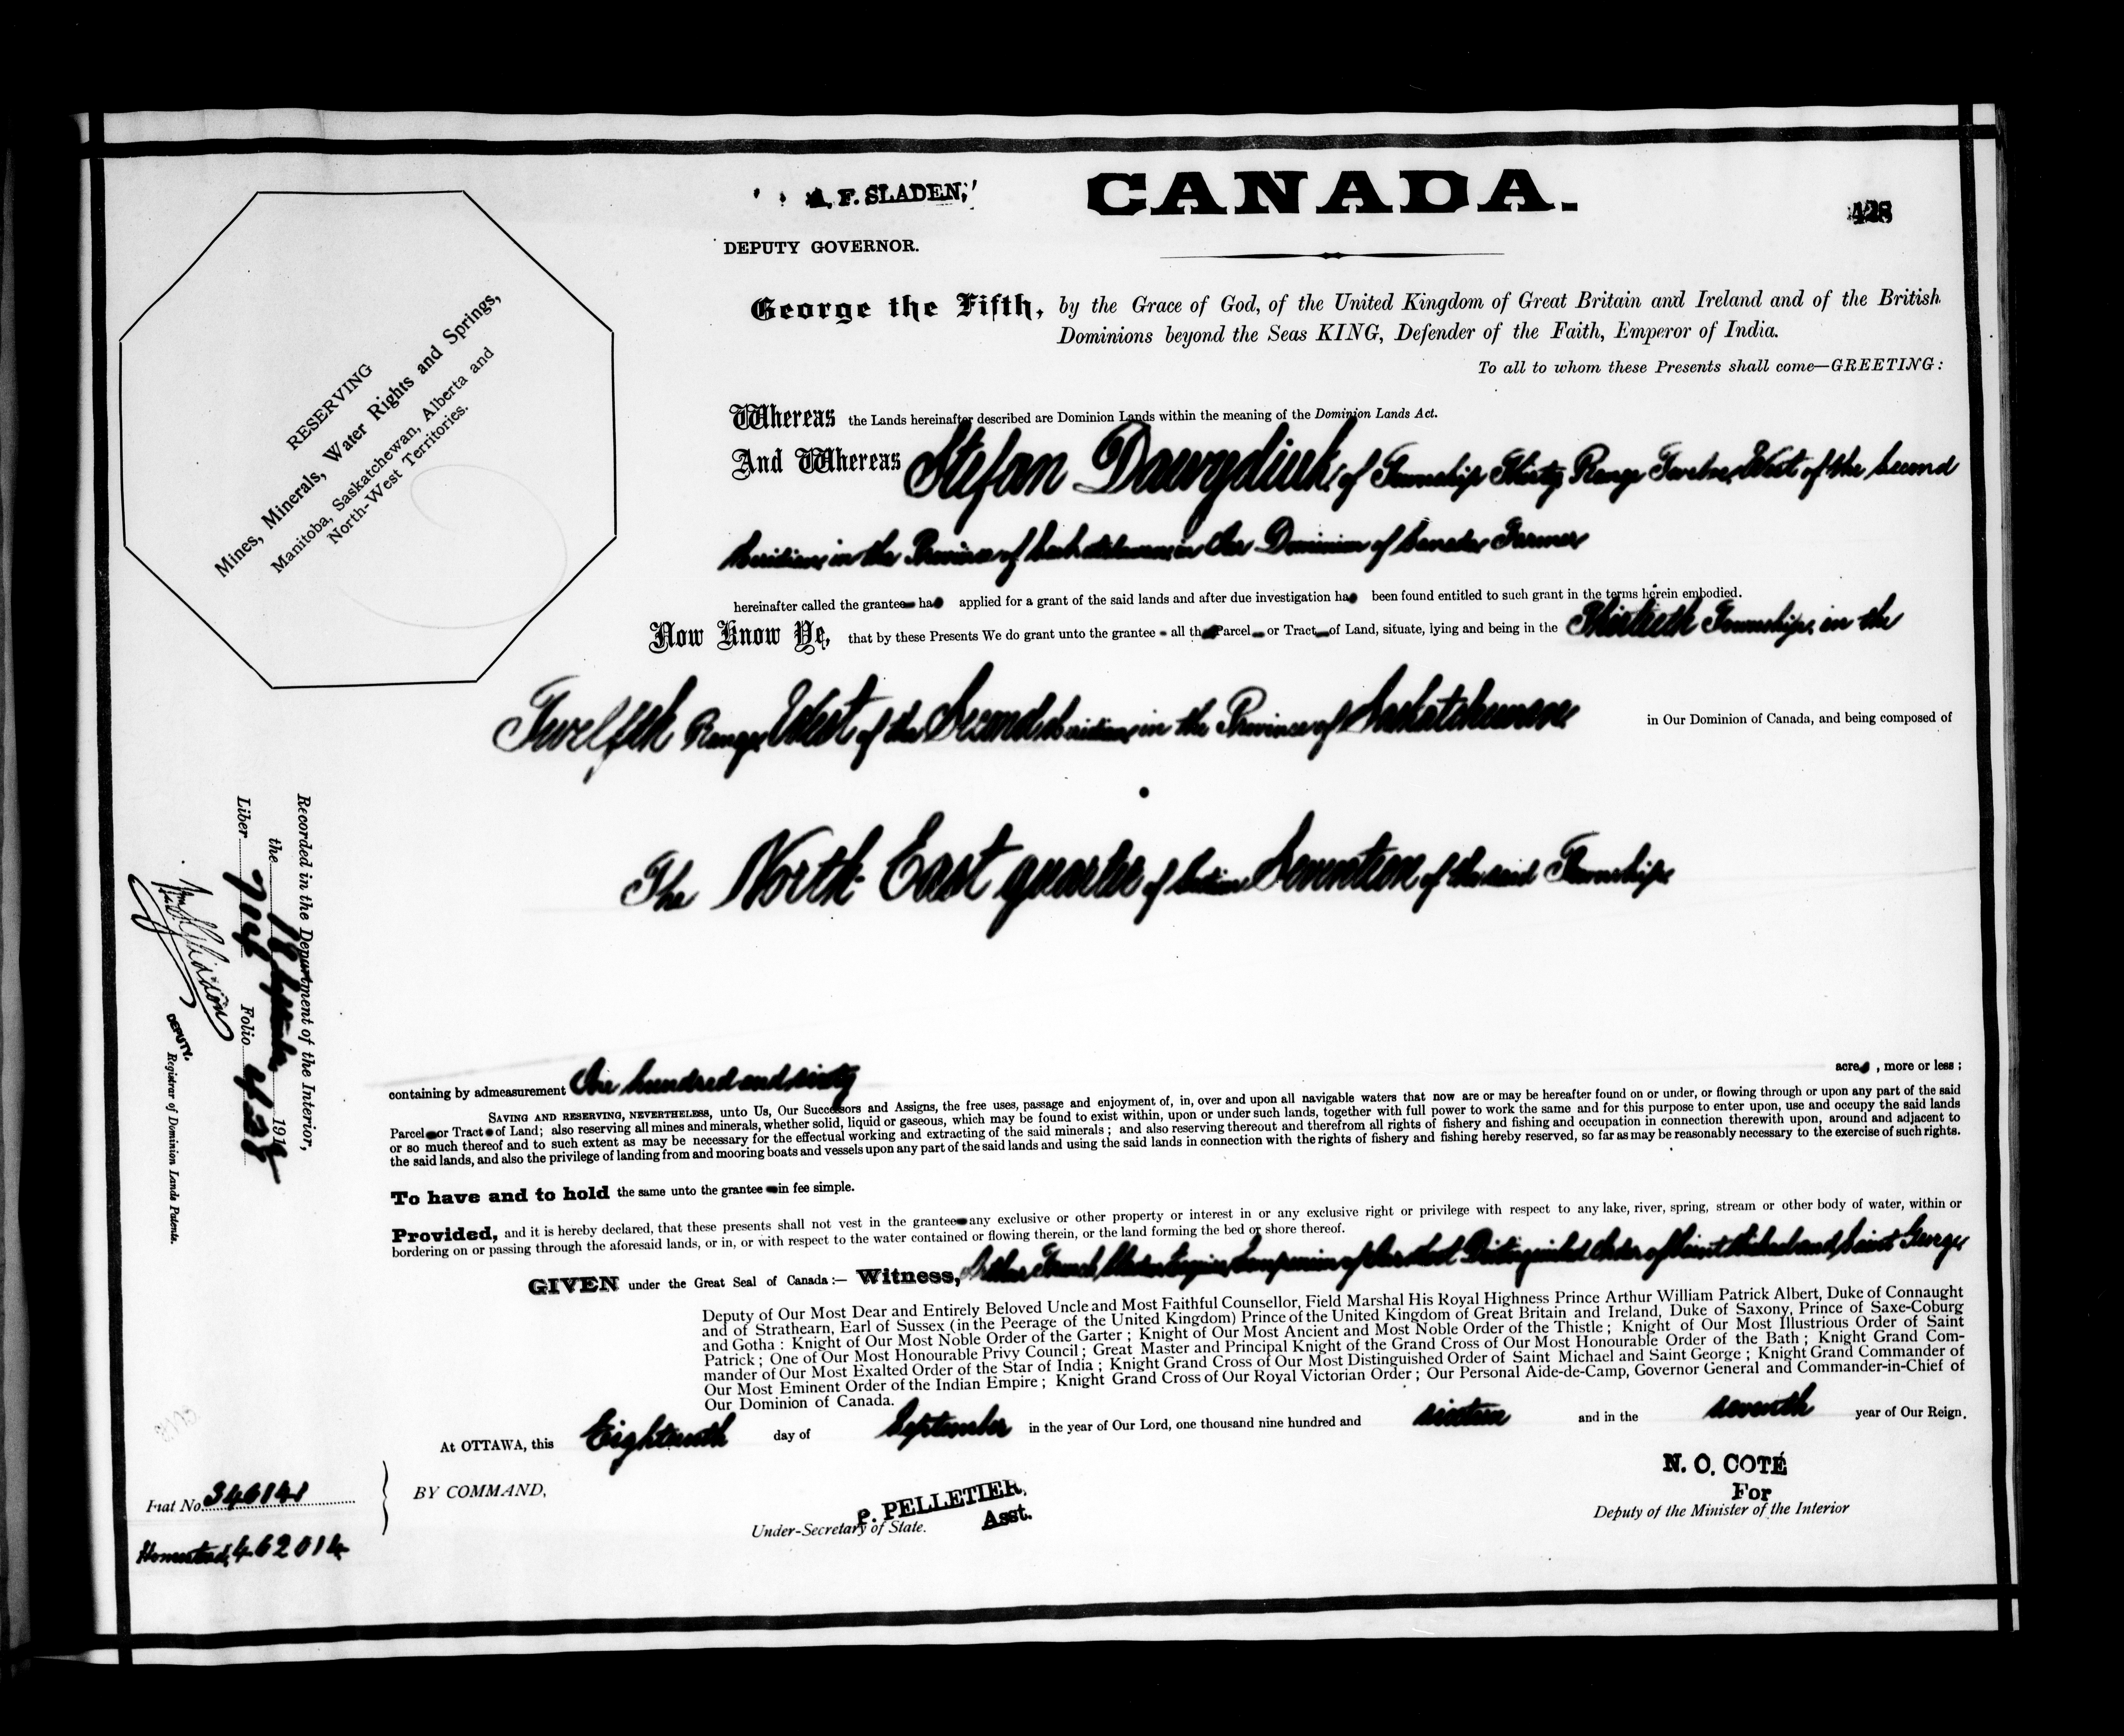 A. F. SLADEN,
CANADA.
428
DEPUTY GOVERNOR.
George the Fifth, by the Grace of God, of the United Kingdom of Great Britain and Ireland and of the British
Dominions beyond the Seas KING, Defender of the Faith, Emperor of India.
To all to whom these Presents shall come—GREETING:
RESERVING
Mines, Minerals, Water Rights and Springs,
Manitoba, Saskatchewan, Alberta and
North-West Territories.
Whereas the Lands hereinafter described are Dominion Lands within the meaning of the Dominion Lands Act.
And Whereas Stefan Dawydiuk, of Township Thirty Range Twelve, West of the Second
Meridian, in the Province of Saskatchewan, in Our Dominion of Canada, Farmer
hereinafter called the grantee has applied for a grant of the said lands and after due investigation has been found entitled to such grant in the terms herein embodied.
Now Know Ye, that by these Presents We do grant unto the grantee all that Parcel or Tract of Land, situate, lying and being in the Thirtieth Township, in the
Twelfth Range, West of the Second Meridian, in the Province of Saskatchewan, in Our Dominion of Canada, and being composed of
The North East quarter of Section Seventeen of the said Township.
containing by admeasurement One hundred and sixty acres , more or less ;
SAVING AND RESERVING, NEVERTHELESS, unto Us, Our Successors and Assigns, the free uses, passage and enjoyment of, in, over and upon all navigable waters that now are or may be hereafter found on or under, or flowing through or upon any part of the said
Parcel or Tract of Land; also reserving all mines and minerals, whether solid, liquid or gaseous, which may be found to exist within, upon or under such lands, together with full power to work the same and for this purpose to enter upon, use and occupy the said lands
or so much thereof and to such extent as may be necessary for the effectual working and extracting of the said minerals ; and also reserving thereout and therefrom all rights of fishery and fishing and occupation in connection therewith upon, around and adjacent to
the said lands, and also the privilege of landing from and mooring boats and vessels upon any part of the said lands and using the said lands in connection with the rights of fishery and fishing hereby reserved, so far as may be reasonably necessary to the exercise of such rights.
To have and to hold the same unto the grantee in fee simple.
Provided, and it is hereby declared, that these presents shall not vest in the grantee any exclusive or other property or interest in or any exclusive right or privilege with respect to any lake, river, spring, stream or other body of water, within or
bordering on or passing through the aforesaid lands, or in, or with respect to the water contained or flowing therein, or the land forming the bed or shore thereof.
GIVEN under the Great Seal of Canada :— Witness, Arthur French Sladen, Esquire, Companion of Our Most Distinguished Order of Saint Michael and Saint George
Deputy of Our Most Dear and Entirely Beloved Uncle and Most Faithful Counsellor, Field Marshal His Royal Highness Prince Arthur William Patrick Albert, Duke of Connaught
and of Strathearn, Earl of Sussex (in the Peerage of the United Kingdom) Prince of the United Kingdom of Great Britain and Ireland, Duke of Saxony, Prince of Saxe-Coburg
and Gotha : Knight of Our Most Noble Order of the Garter ; Knight of Our Most Ancient and Most Noble Order of the Thistle ; Knight of Our Most Illustrious Order of Saint
Patrick ; One of Our Most Honourable Privy Council ; Great Master and Principal Knight of the Grand Cross of Our Most Honourable Order of the Bath ; Knight Grand Com-
mander of Our Most Exalted Order of the Star of India ; Knight Grand Cross of Our Most Distinguished Order of Saint Michael and Saint George ; Knight Grand Commander of
Our Most Eminent Order of the Indian Empire ; Knight Grand Cross of Our Royal Victorian Order ; Our Personal Aide-de-Camp, Governor General and Commander-in-Chief of
Our Dominion of Canada.
At OTTAWA, this Eighteenth day of September in the year of Our Lord, one thousand nine hundred and sixteen and in the seventh year of Our Reign.
BY COMMAND,
P. PELLETIER,
Asst.
Under-Secretary of State.
N. O. COTÉ
For
Deputy of the Minister of the Interior
Fiat No. 346141
Homestead, 462014
Recorded in the Department of the Interior,
the 18 September 1916
Liber 714 Folio 428
DEPUTY.
Registrar of Dominion Lands Patents.